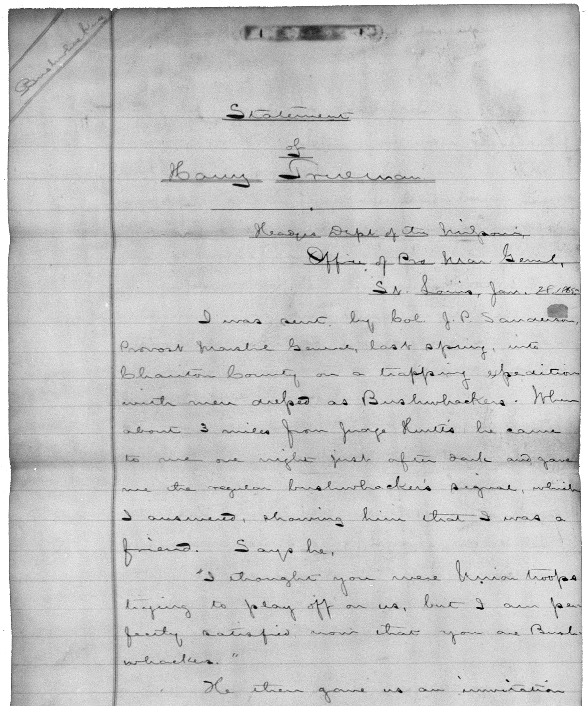 Bushwhackers
Statement
of
Harry Truman
Headqrs Dept of the Missouri,
Office of Pro Mar Genrl,
St. Louis, Jan. 28, 1865
I was sent by Col J. P. Sanderson,
Provost Marshl General, last spring, into
Chariton County on a trapping expedition
with men dressed as Bushwhackers. When
about 3 miles from Judge he came
to me one night just after dark and gave
me the regular bushwhacker's signal, which
I answered, showing him that I was a
friend. Says he,
"I thought you were Union troops
trying to play off on us, but I am per
fectly satisfied now that you are Bush
whackers."
He then gave us an invitation